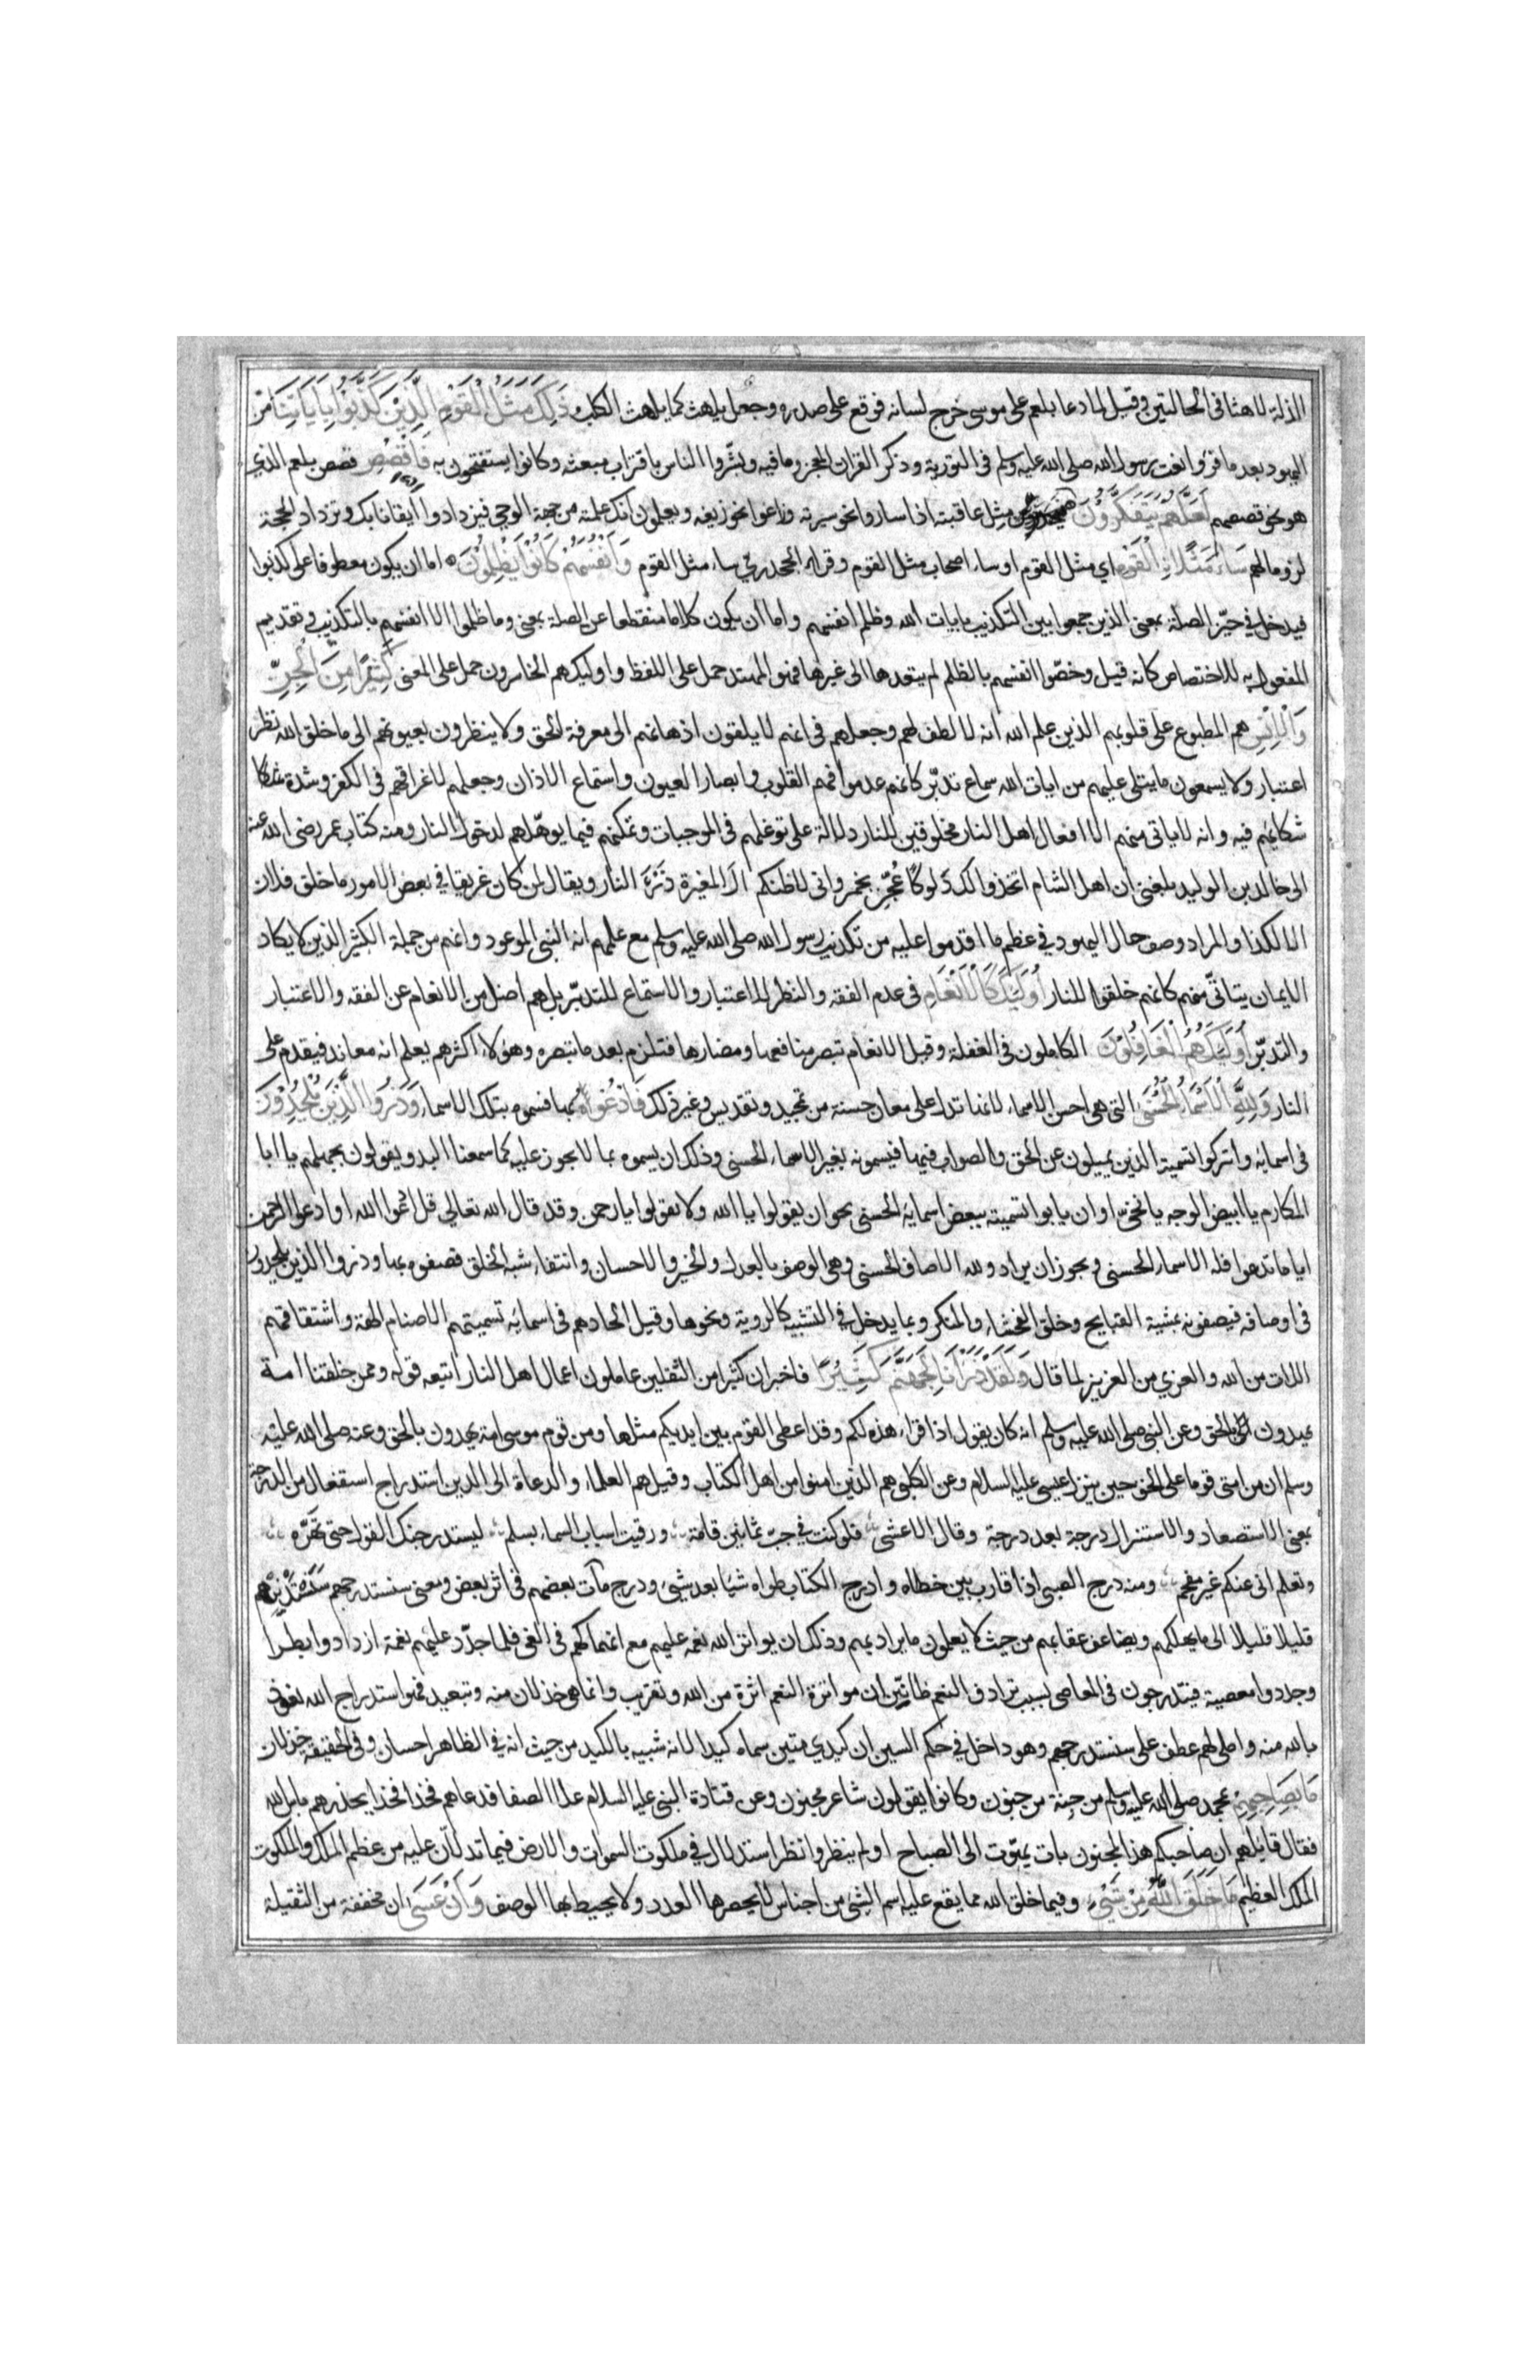 الذلة لاهثا فى الحالتين وقيل لما دعا بلعم على موسى خرج لسانه فوقع على صدره وجعل يلهث كما يلهث الكلب ذَلِكَ مَثَلُ الْقَوْمِ الَّذِيْنَ كَذَّبُوْا بِاٰيَاتِنَا من
اليهود بعد ما قرؤا نعت رسول الله صلى الله عليه وسلم فى التورية وذكر القران المعجز وما فيه وبشّروا الناس باقتراب مبعثه وكانوا يستفتحون به فَاقْصُصِ قصص بلعم الذى
هو نحو قصصهم لَعَلَّهُمْ يَتَفَكَّرُوْنَ فيحذرون مثل عاقبته اذا ساروا نحو سيرته وزاغوا نحو زيغه ويعلمون انك علمته من جهة الوحى فيزدادوا ايقانا بك وتزداد الحجة
لزوما لهم سَاءَ مَثَلًا الْقَوْمُ اي مثل القوم او ساء اصحاب مثل القوم وقراء الجحدري ساء مثل القوم وَاَنْفُسَهُمْ كَانُوْا يَظْلِمُوْنَ اما ان يكون معطوفا على كذبوا
فيدخل في حيّز الصلة بمعنى الذين جمعوا بين التكذيب بايات الله وظلم انفسهم واما ان يكون كلاما منقطعا عن الصلة بمعنى وما ظلموا الا انفسهم بالتكذيب وتقديم
المفعول به للاختصاص كانه قيل وخصّوا انفسهم بالظلم لم يتعدها الى غيرها فهو المهتد حمل على اللفظ واوليك هم الخاسرون حمل على المعنى كَثِيْرًا مِنَ الْجِنِّ
وَالْاِنْسِ هم المطبوع على قلوبهم الذين علم الله انه لا لطف لهم وجعلهم فى انهم لا يلقون اذهانهم الى معرفة الحق ولا ينظرون بعيونهم الى ما خلق الله نظر
اعتبار ولا يسمعون ما يتلى عليهم من ايات الله سماع تدبّر كانهم عدموا فهم القلوب وابصار العيون واستماع الاذان وجعلهم لاغراقهم فى الكفر وشدة شكا
شكايمهم فيه وانه لا ياتى منهم الا افعال اهل النار مخلوقين للنار دلالة على توغلهم فى الموجبات وتمكنهم فيما يوهّلهم لدخول النار ومنه كتاب عمر رضى الله عنه
الى خالد بن الوليد بلغنى ان اهل الشام اتخذوا لك دَلوكًا عُجِنَ بخمر وانى لاظنكم ال المغيرة ذَرْءَ النار ويقال لمن كان غريقا في بعض الامور ما خلق فلان
الا لكذا والمراد وصف حال اليهود في عظم ما اقدموا عليه من تكذيب رسول الله صلى الله عليه وسلم مع علمهم انه النبى الموعود وانهم من جملة الكثير الذين لا يكاد
الايمان يتاتّى منهم كانهم خلقوا للنار اُولٰئِكَ كَالْاَنْعَامِ فى عدم الفقه والنظر للاعتبار والاستماع للتدبّر بل هم اضل من الانعام عن الفقه والاعتبار
والتدبّر اُولٰئِكَ هُمُ الْغَافِلُوْنَ الكاملون فى الغفلة وقيل الانعام تبصر منافعها ومضارها فتلزم بعد ما تبصره وهؤلاء اكثرهم يعلم انه معاند فيقدم على
النار وَلِلّٰهِ الْاَسْمَاءُ الْحُسْنَى التى هى احسن الاسماء لانها تدل على معان حسنة من تمجيد وتقديس وغير ذلك فَادْعُوْهُ بِهَا فسموه بتلك الاسماء وَذَرُوا الَّذِيْنَ يُلْحِدُوْنَ
فى اسمايه واتركوا تسمية الذين يميلون عن الحق والصواب فيها فيسمونه بغير الاسماء الحسنى وذلك ان يسموه بما لا يجوز عليه كما سمعنا البدو يقولون بجهلهم يا ابا
المكارم يا ابيض الوجه يا نخى او ان يابوا تسميته ببعض اسمايه الحسنى نحو ان يقولوا يا الله ولا يقولوا يا رحمن وقد قال الله تعالى قل ادعوا الله او ادعوا الرحمن
ايا ما تدعوا فله الاسماء الحسنى ويجوز ان يراد ولله الاصاف الحسنى وهى الوصف بالعدل والخير والاحسان وانتفاء شبه الخلق فصفوه بها وذروا الذين يلحدون
فى اوصافه فيصفونه بمشية القبايح وخلق الفحشاء والمنكر وبما يدخل في التشبيه كالروية ونحوها وقيل الحادهم فى اسمائه تسميتهم الاصنام الهة واشتقاقهم
اللات من الله والعزى من العزيز لما قال وَلَقَدْ ذَرَأْنَا لِجَهَنَّمَ كَثِيْرًا فاخبر ان كثيرا من الثقلين عاملون اعمال اهل النار اتبعه قوله وممن خلقنا امة
يهدون بالحق وعن النبى صلى الله عليه وسلم انه كان يقول اذا قراء هذه لكم وقد اعطى القوم بين ايديكم مثلها ومن قوم موسى امة يهدون بالحق وعنه صلى الله عليه
وسلم ان من امتى قوما على الحق حين ينزل عيسى عليه السلام وعن الكلبى هم الذين امنوا من اهل الكتاب وقيل هم العلماء والدعاة الى الدين استدراج استفعال من الدرجة
بمعنى الاستصعاد والاستنزال درجة بعد درجة وقال الاعشى فلو كنت في جب ثمانين قامة ورقيت اسباب السماء بسلم ليستدرجنك القول حتى تهرّه
وتعلم انى عنكم غير مفحم ومنه درج الصبى اذا قارب بين خطاه وادرج الكتاب طواه شيا بعد شيئ ودرج مات بعضهم فى اثر بعض ومعنى سنستدرجهم سنستدنيهم
قليلا قليلا الى ما يهلكهم ويضاعف عقابهم من حيث لا يعلمون ما يراد بهم وذلك ان يواتر الله نعمه عليهم مع انهماكهم فى الغى فلما جدّد عليهم نعمة ازدادوا بطرا
وجددوا معصية فيتدرجون فى المعاصى بسبب ترادف النعم ظانّين ان مواترة النعم اثرة من الله وتقريب وانما هى خذلان منه وتبعيد فهو استدراج الله نعوذ
بالله منه واملى لهم عطف على سنستدرجهم وهو داخل في حكم السين ان كيدي متين سماه كيدا لانه شبيه بالكيد من حيث انه في الظاهر احسان وفى الحقيقة خذلان
مَا بِصَاحِبِهِمْ بمحمد صلى الله عليه وسلم من جِنة من جنون وكانوا يقولون شاعر مجنون وعن قتادة النبى عليه السلام علا الصفا فدعاهم فخذا فخذا يحذرهم باس الله
فقال قايلهم ان صاحبكم هذا لمجنون بات يهوّت الى الصباح اولم ينظروا نظر استدلال في ملكوت السموات والارض فيما تدلّان عليه من عظم الملك والملكوت
الملك العظيم مَا خَلَقَ اللّٰهُ مِنْ شَيْءٍ وفيما خلق الله مما يقع عليه اسم الشئ من اجناس لا يحصرها العدد ولا يحيط بها الوصف وَاَنْ عَسَى ان مخففة من الثقيلة